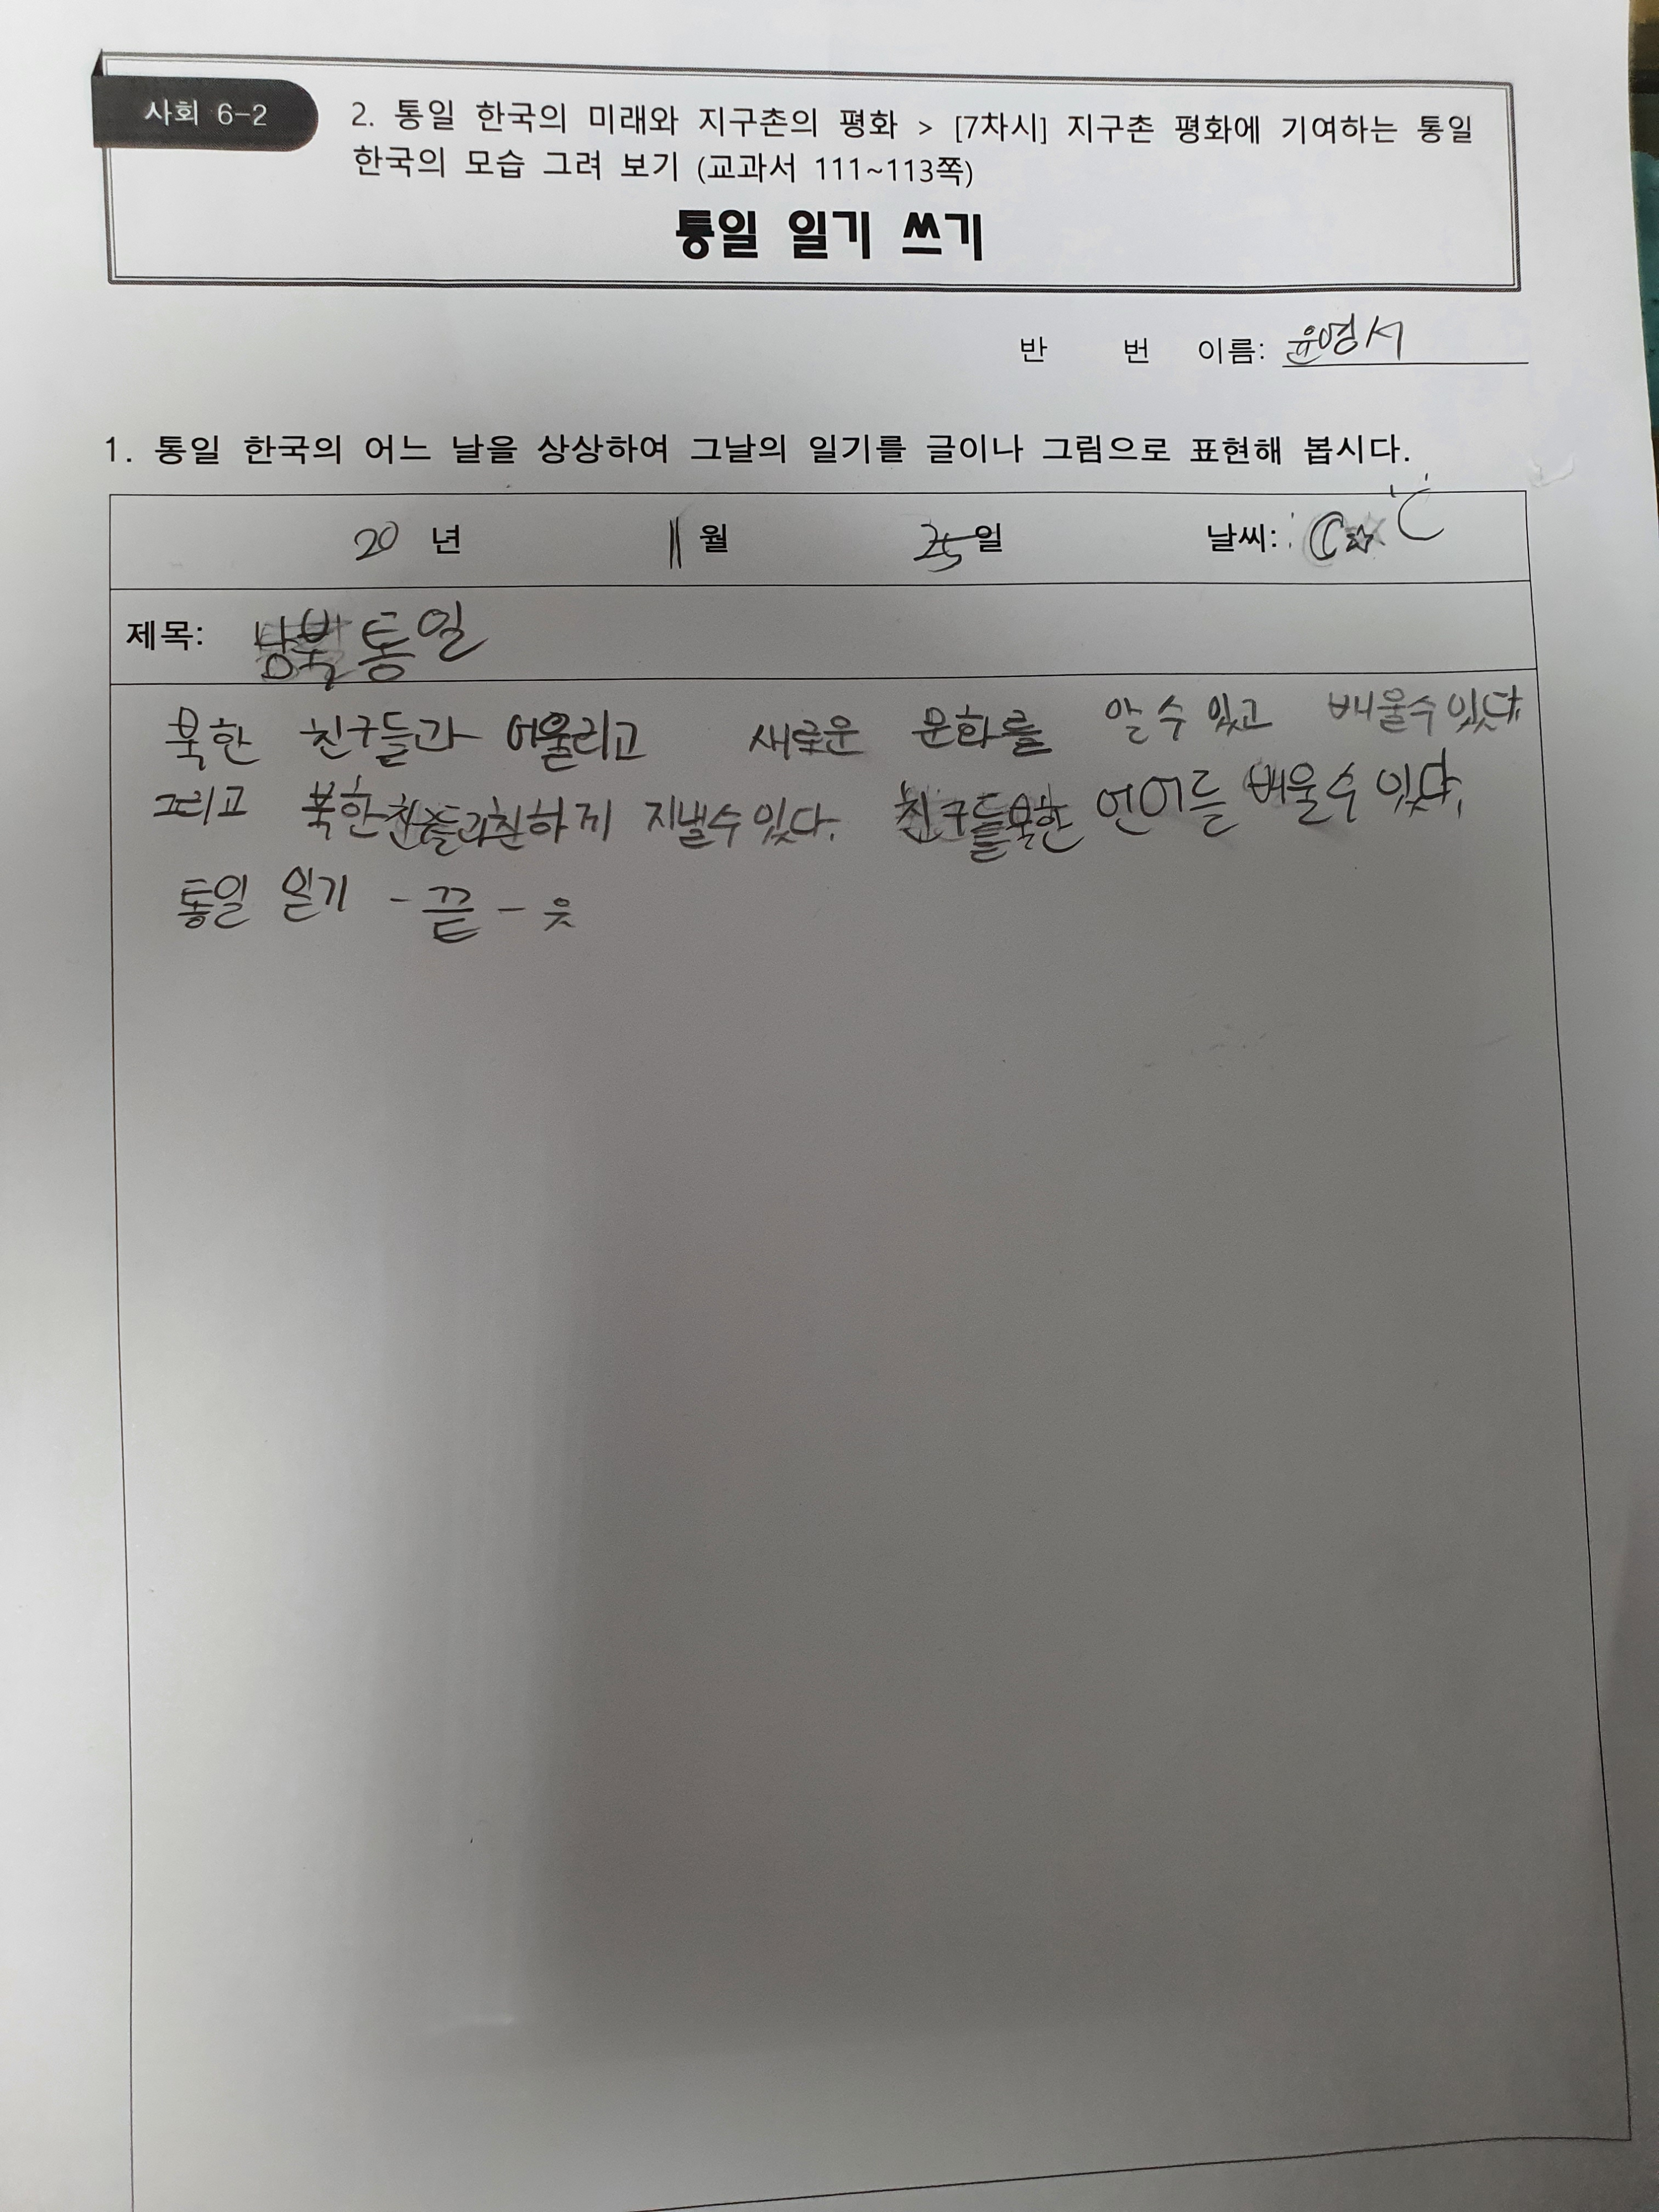 사회 6-2
2. 통일 한국의 미래와 지구촌의 평화 > [7차시] 지구촌 평화에 기여하는 통일
한국의 모습 그려 보기 (교과서 111~113쪽)
통일 일기 쓰기
반 번 이름: 윤영서
1. 통일 한국의 어느 날을 상상하여 그날의 일기를 글이나 그림으로 표현해 봅시다.
20 년 11 월 25 일 날씨:
제목: 남북통일
북한 친구들과 어울리고 새로운 문화를 알 수 있고 배울수있다.
그리고 북한 친하게 지낼수있다. 친구들북한 언어를 배울수 있다.
통일 일기 - 끝 - 웃